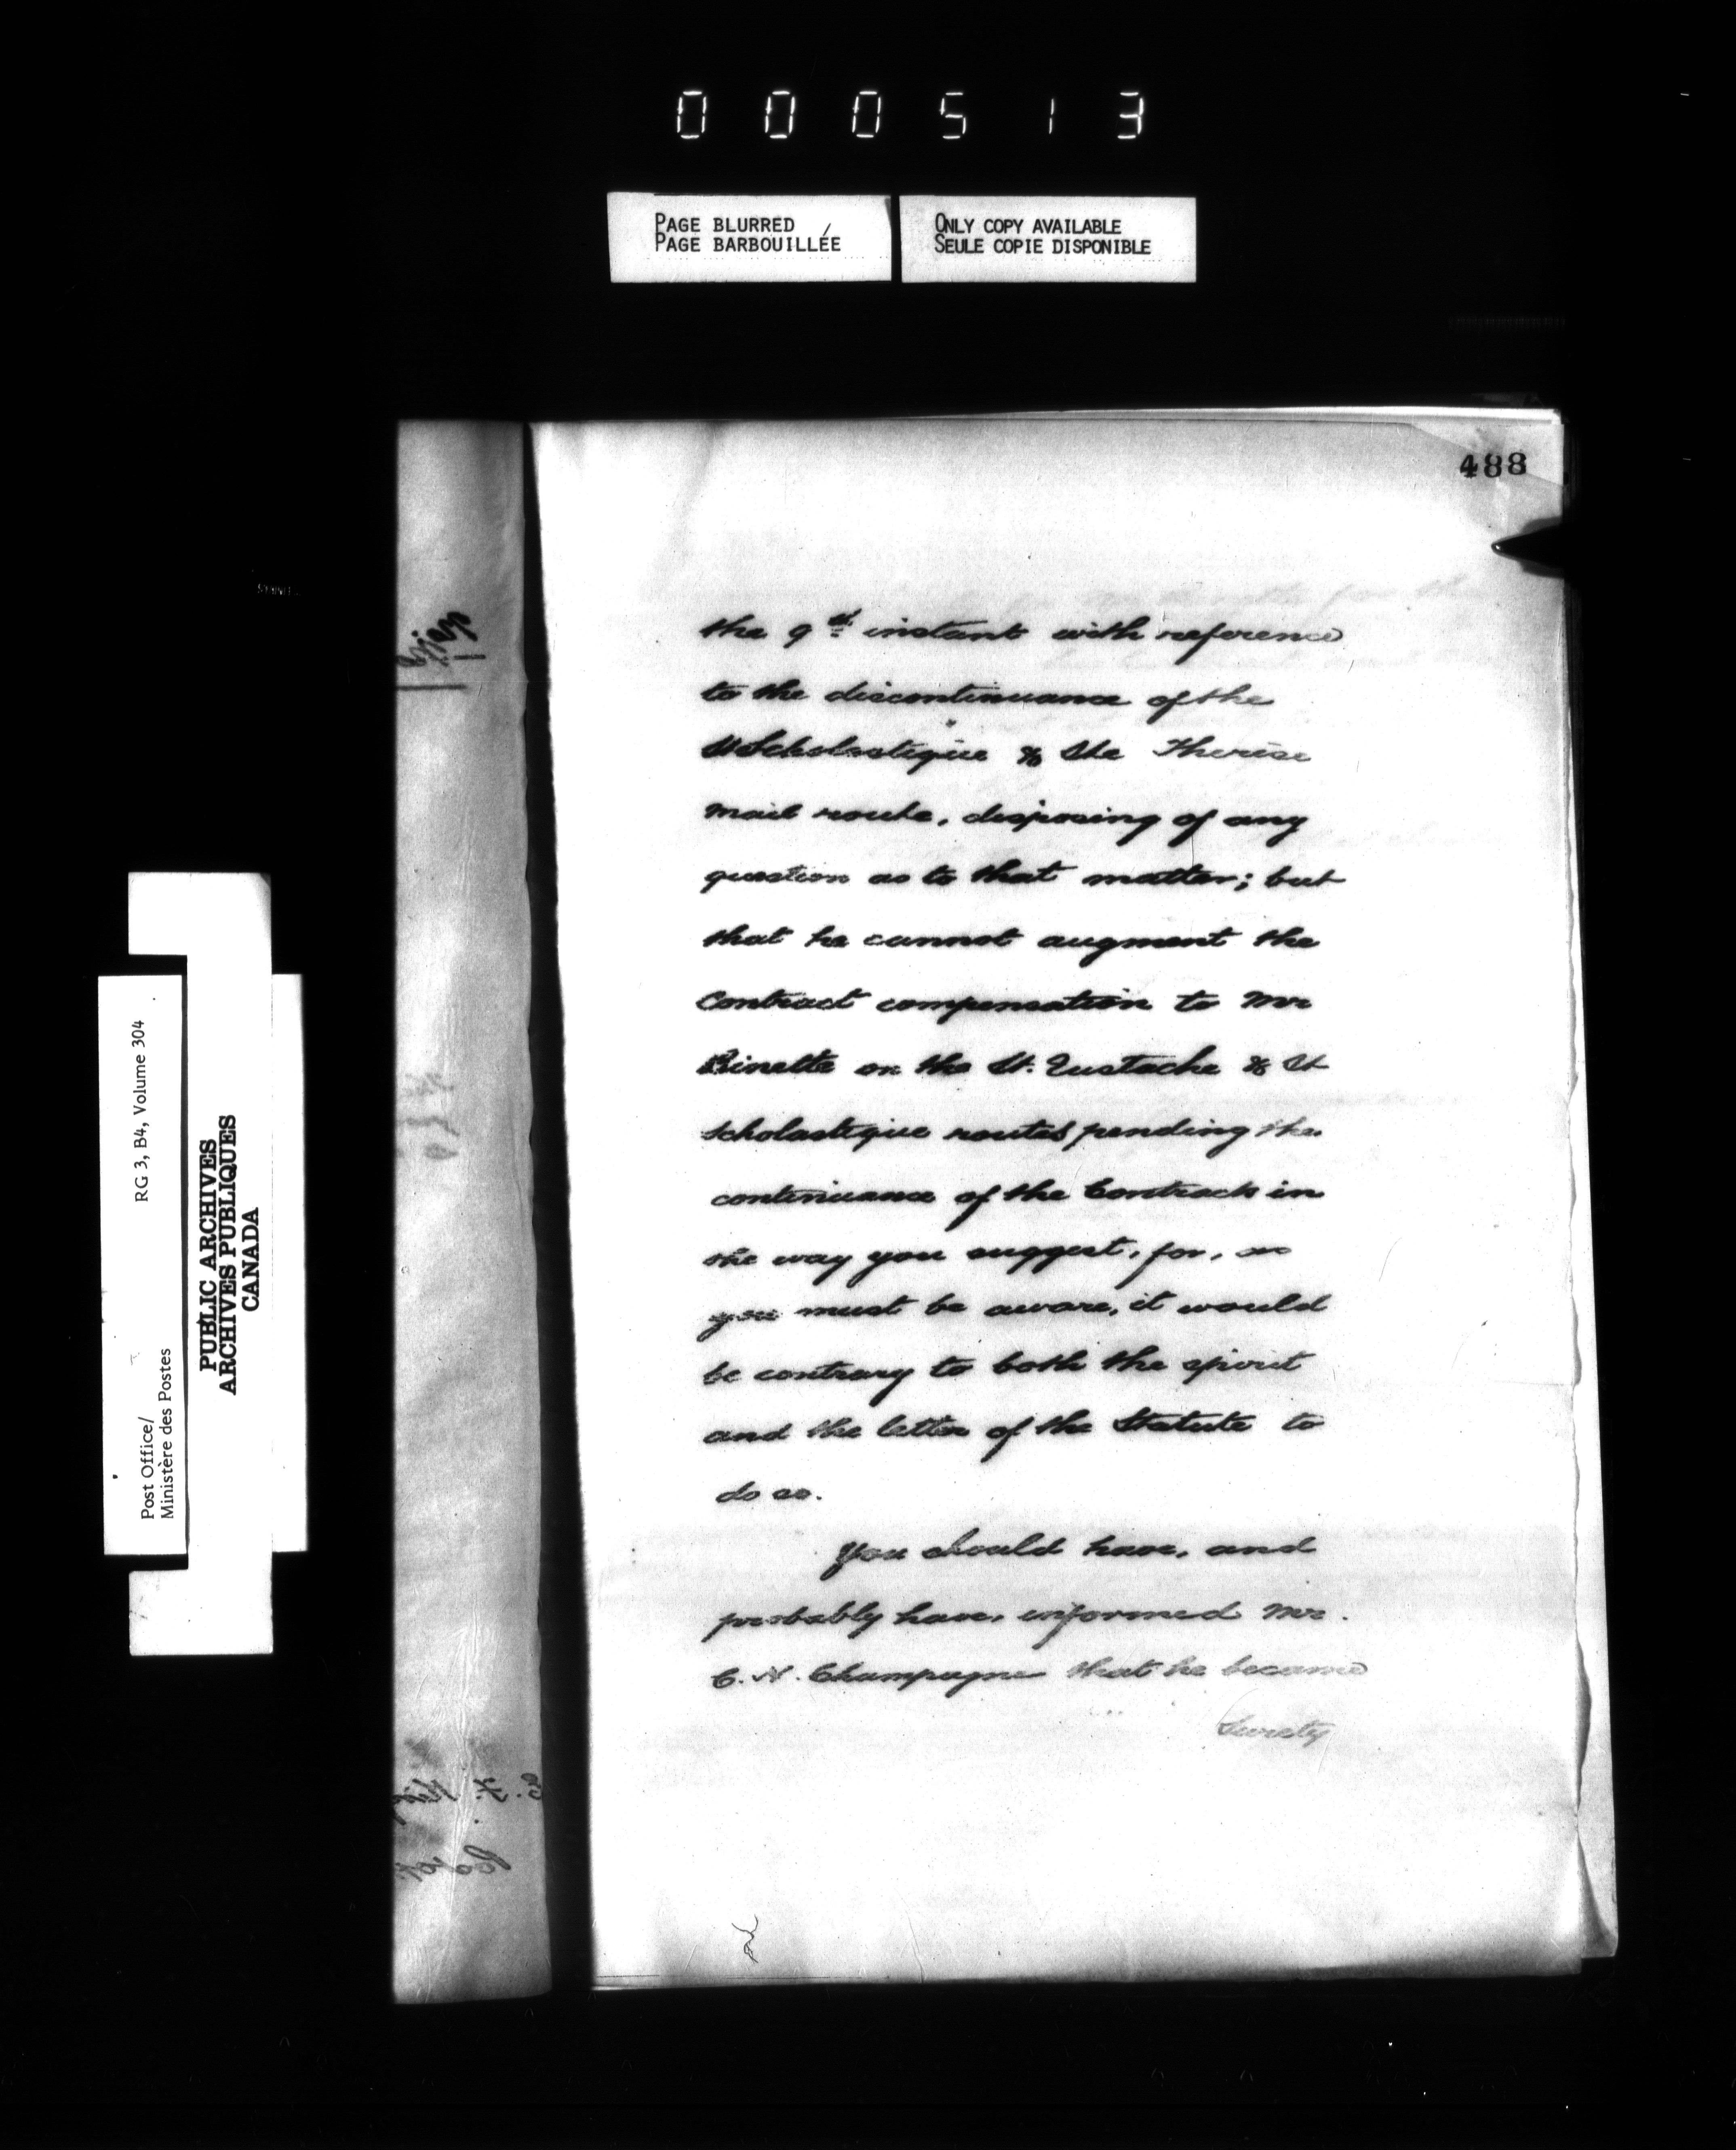 000513
PAGE BLURRED
PAGE BARBOUILLÉE
ONLY COPY AVAILABLE
SEULE COPIE DISPONIBLE
488
the 9th instant with reference
to the discontinuance of the
St Scholastique & Ste Therese
mail route, disposing of any
question as to that matter; but
that he cannot augment the
Contract compensation to Mr
Binette on the St. Eustache & St
Scholastique routes pending the
continuance of the Contracts in
the way you suggest, for, as
you must be aware, it would
be contrary to both the spirit
and the letter of the Statute to
do so.
You should have, and
probably have, informed Mr.
C. N. Champagne that he became
Surety
RG 3, B4, Volume 304
Post Office/
Ministère des Postes
PUBLIC ARCHIVES
ARCHIVES PUBLIQUES
CANADA